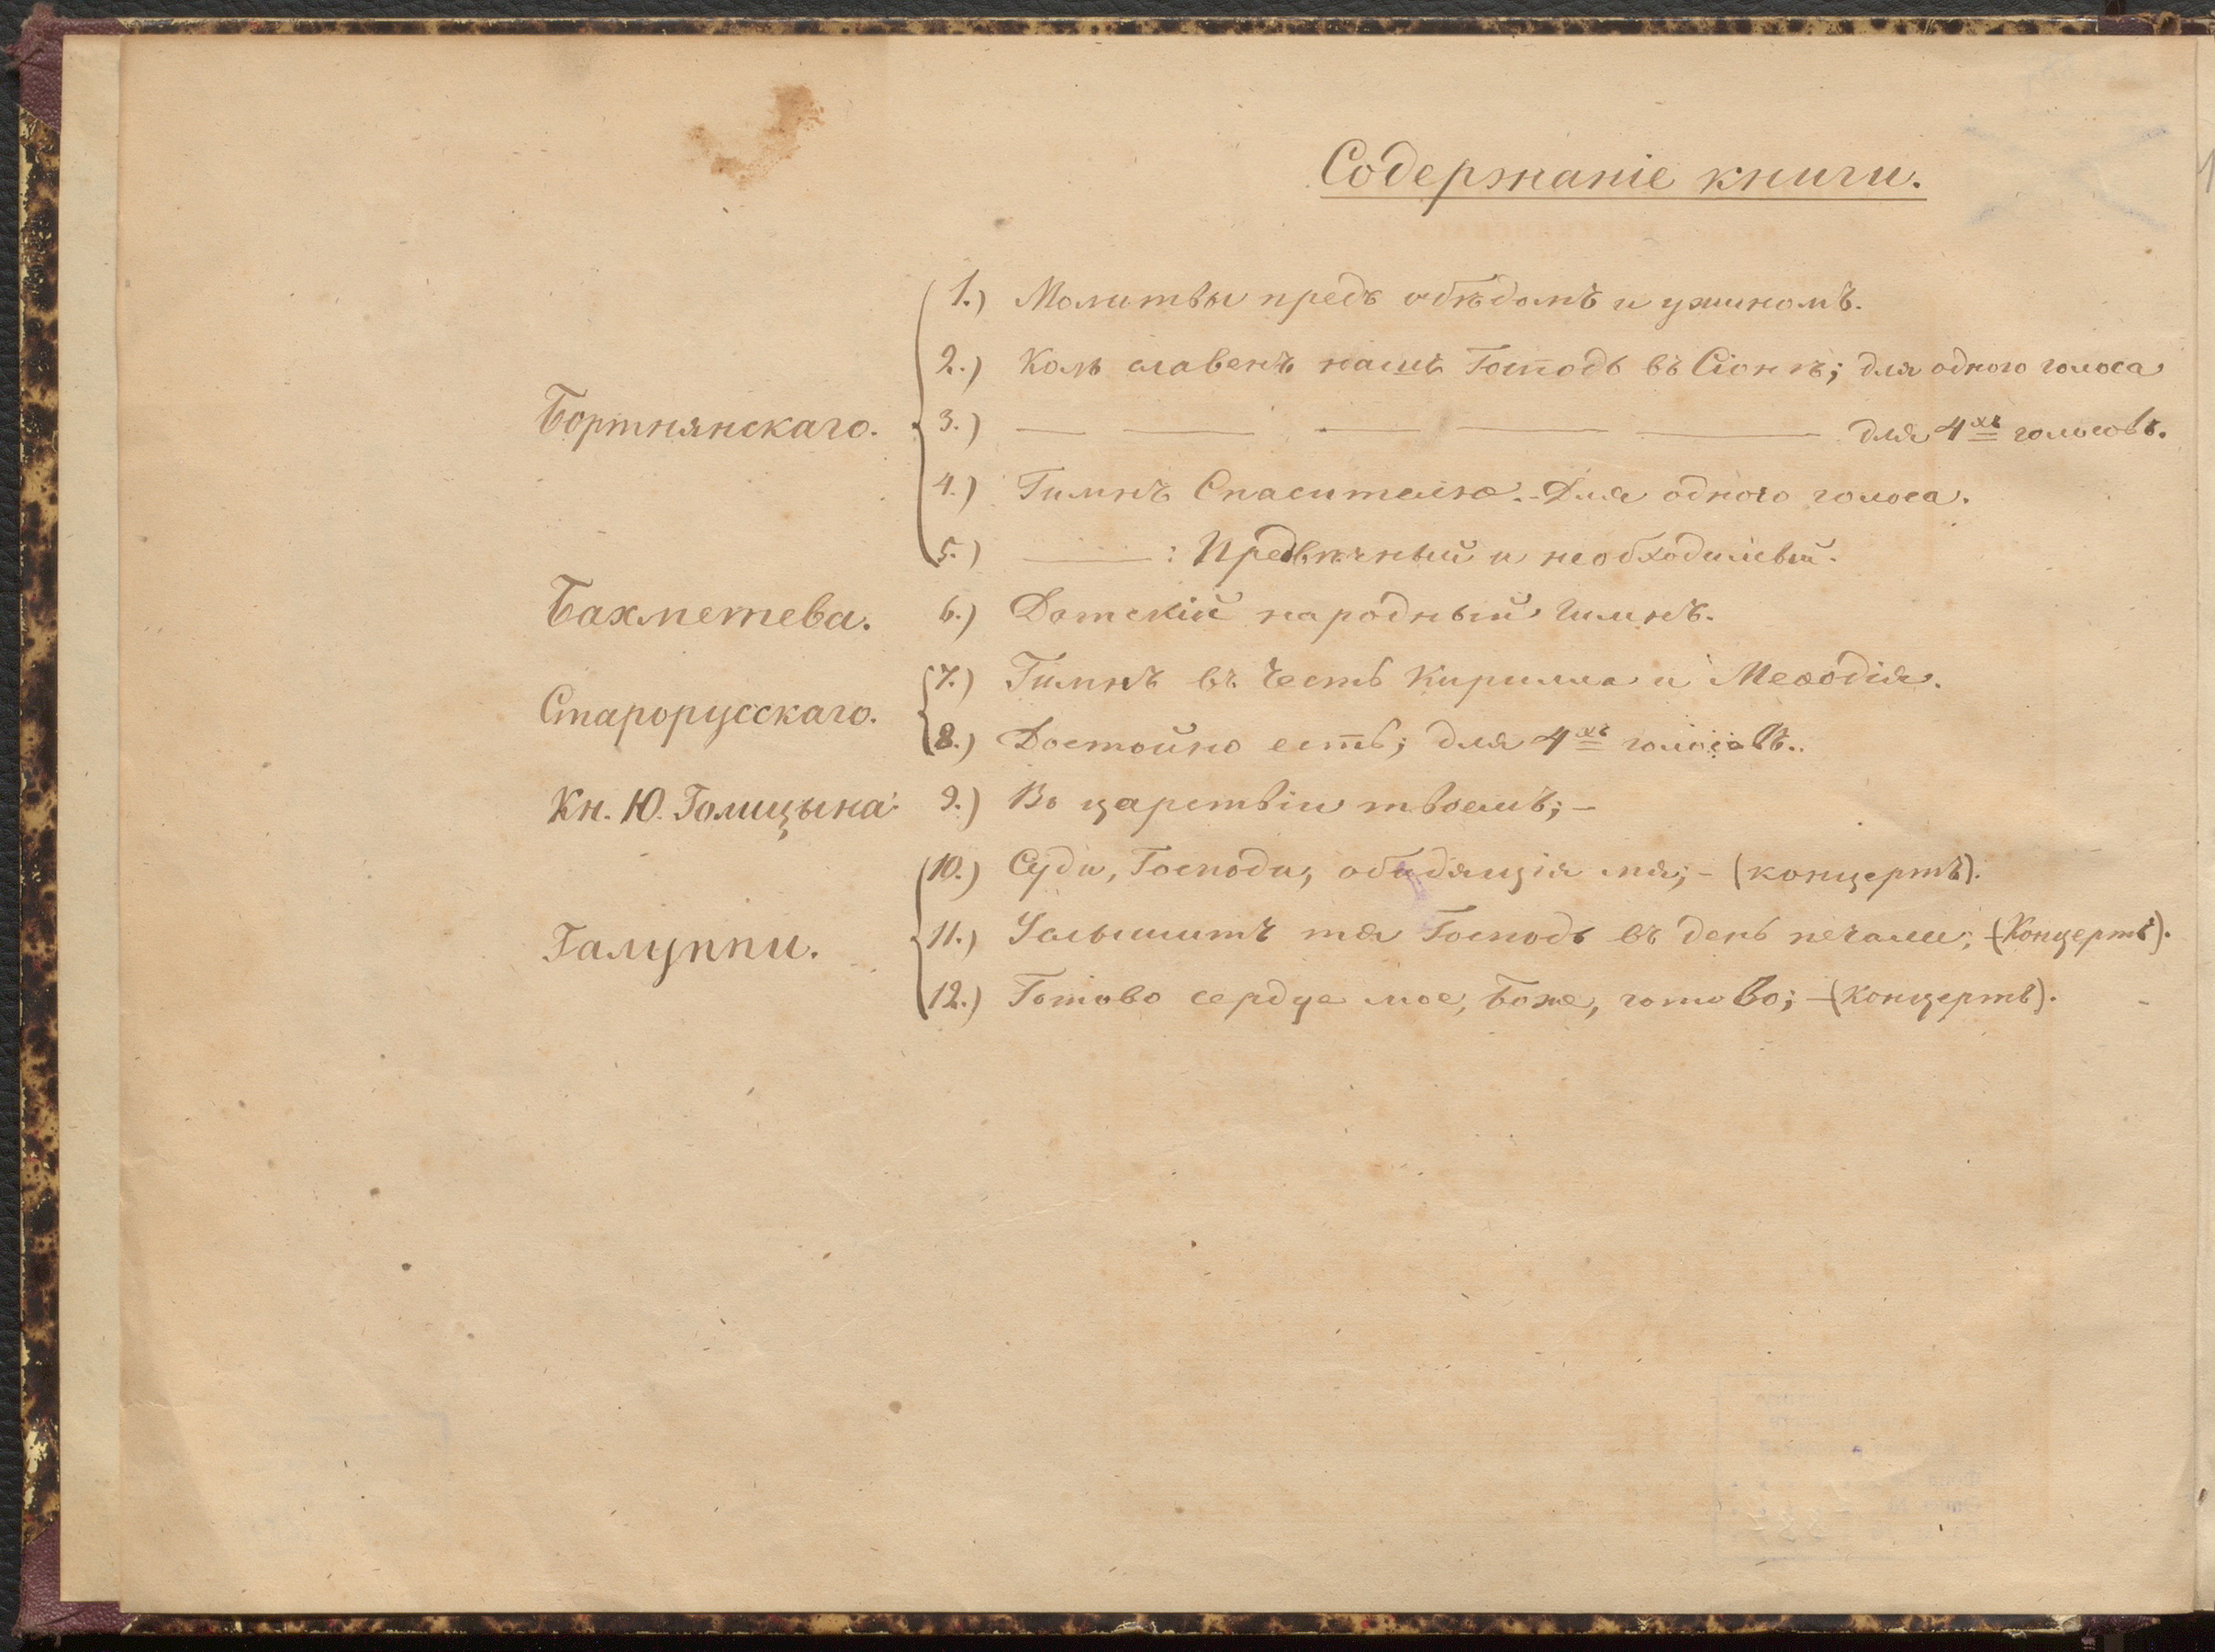 Содержаніе книги.
1.) Молитвы предъ обѣдомъ и ужиномъ.
2.) Коль славенъ нашъ Господь въ Сіонѣ; для одного голоса
Бортнянскаго. 3.) — — — — — для 4хъ голосовъ.
4.) Гимнъ Спасителю. - Для одного голоса.
5.) — : Предвѣчный и необходимый.
Бахметева. 6.) Датскій народный гимнъ.
7.) Гимнъ въ честь Кирилла и Меѳодія.
Старорусскаго.
8.) Достойно есть; для 4хъ голосовъ.
Кн. Ю. Голицына. 9.) Во царствіи твоемъ; -
10.) Суди, Господи, обидящія мя; - (концертъ).
Галуппи. 11.) Услышитъ тя Господь въ день печали; - (Концертъ).
12.) Готово сердце мое, Боже, готово; - (Концертъ).